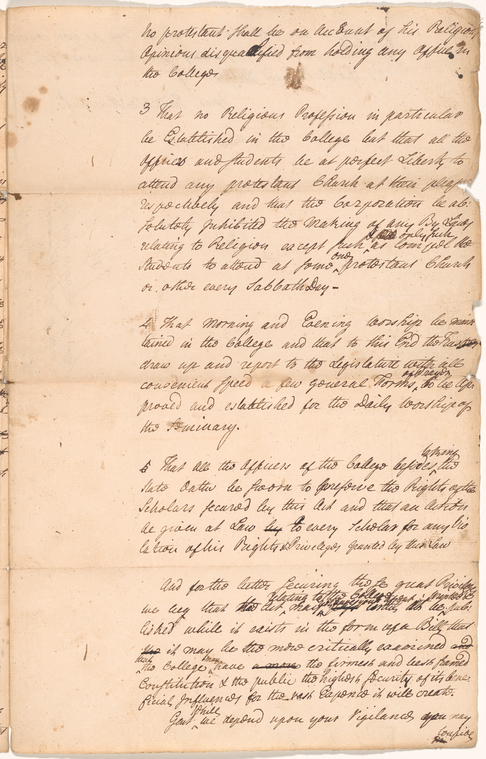 No protestant shall be on Account of his Religious
Opinions disqualified from holding any Office in
the College
3 That no Religious Profession in particular
be Established in the College but that all the
Officers and Students be at perfect Liberty to
attend any protestant Church at their pleasure
respectively and that the Corporation be ab-
solutely Inhibited the Making of any By Laws
only such
relating to Religion except such as compel the
Students to attend at some one protestant Church
or other every Sabbathday-
4 That Morning and Evening Worship be main
tained in the College and that to this End the Trustees
draw up and report to the Legislature with all
of Prayer
convenient Speed a few general Forms, to be Ap
proved and established for the Daily Worship of
the Seminary.
5 That all the Officers of the College besides the
State Oaths be Sworn to preserve the Rights of the
Scholars secured by this Act and that an Action
be given at Law by to every Scholar for any Vio
lation of his Rights & Priviledges granted by this Law
And for the better Securing these great
relating to the College
we beg that the Act may be pub
lished while it exists in the form of a Bill that
it may be the more critically examined and
the College have a more the firmest and best framed
Constitution & the public the highest Security of its bene
ficial Influences for the vast Expence it will create.
while
Gent we depend upon your Vigilance you may
confide